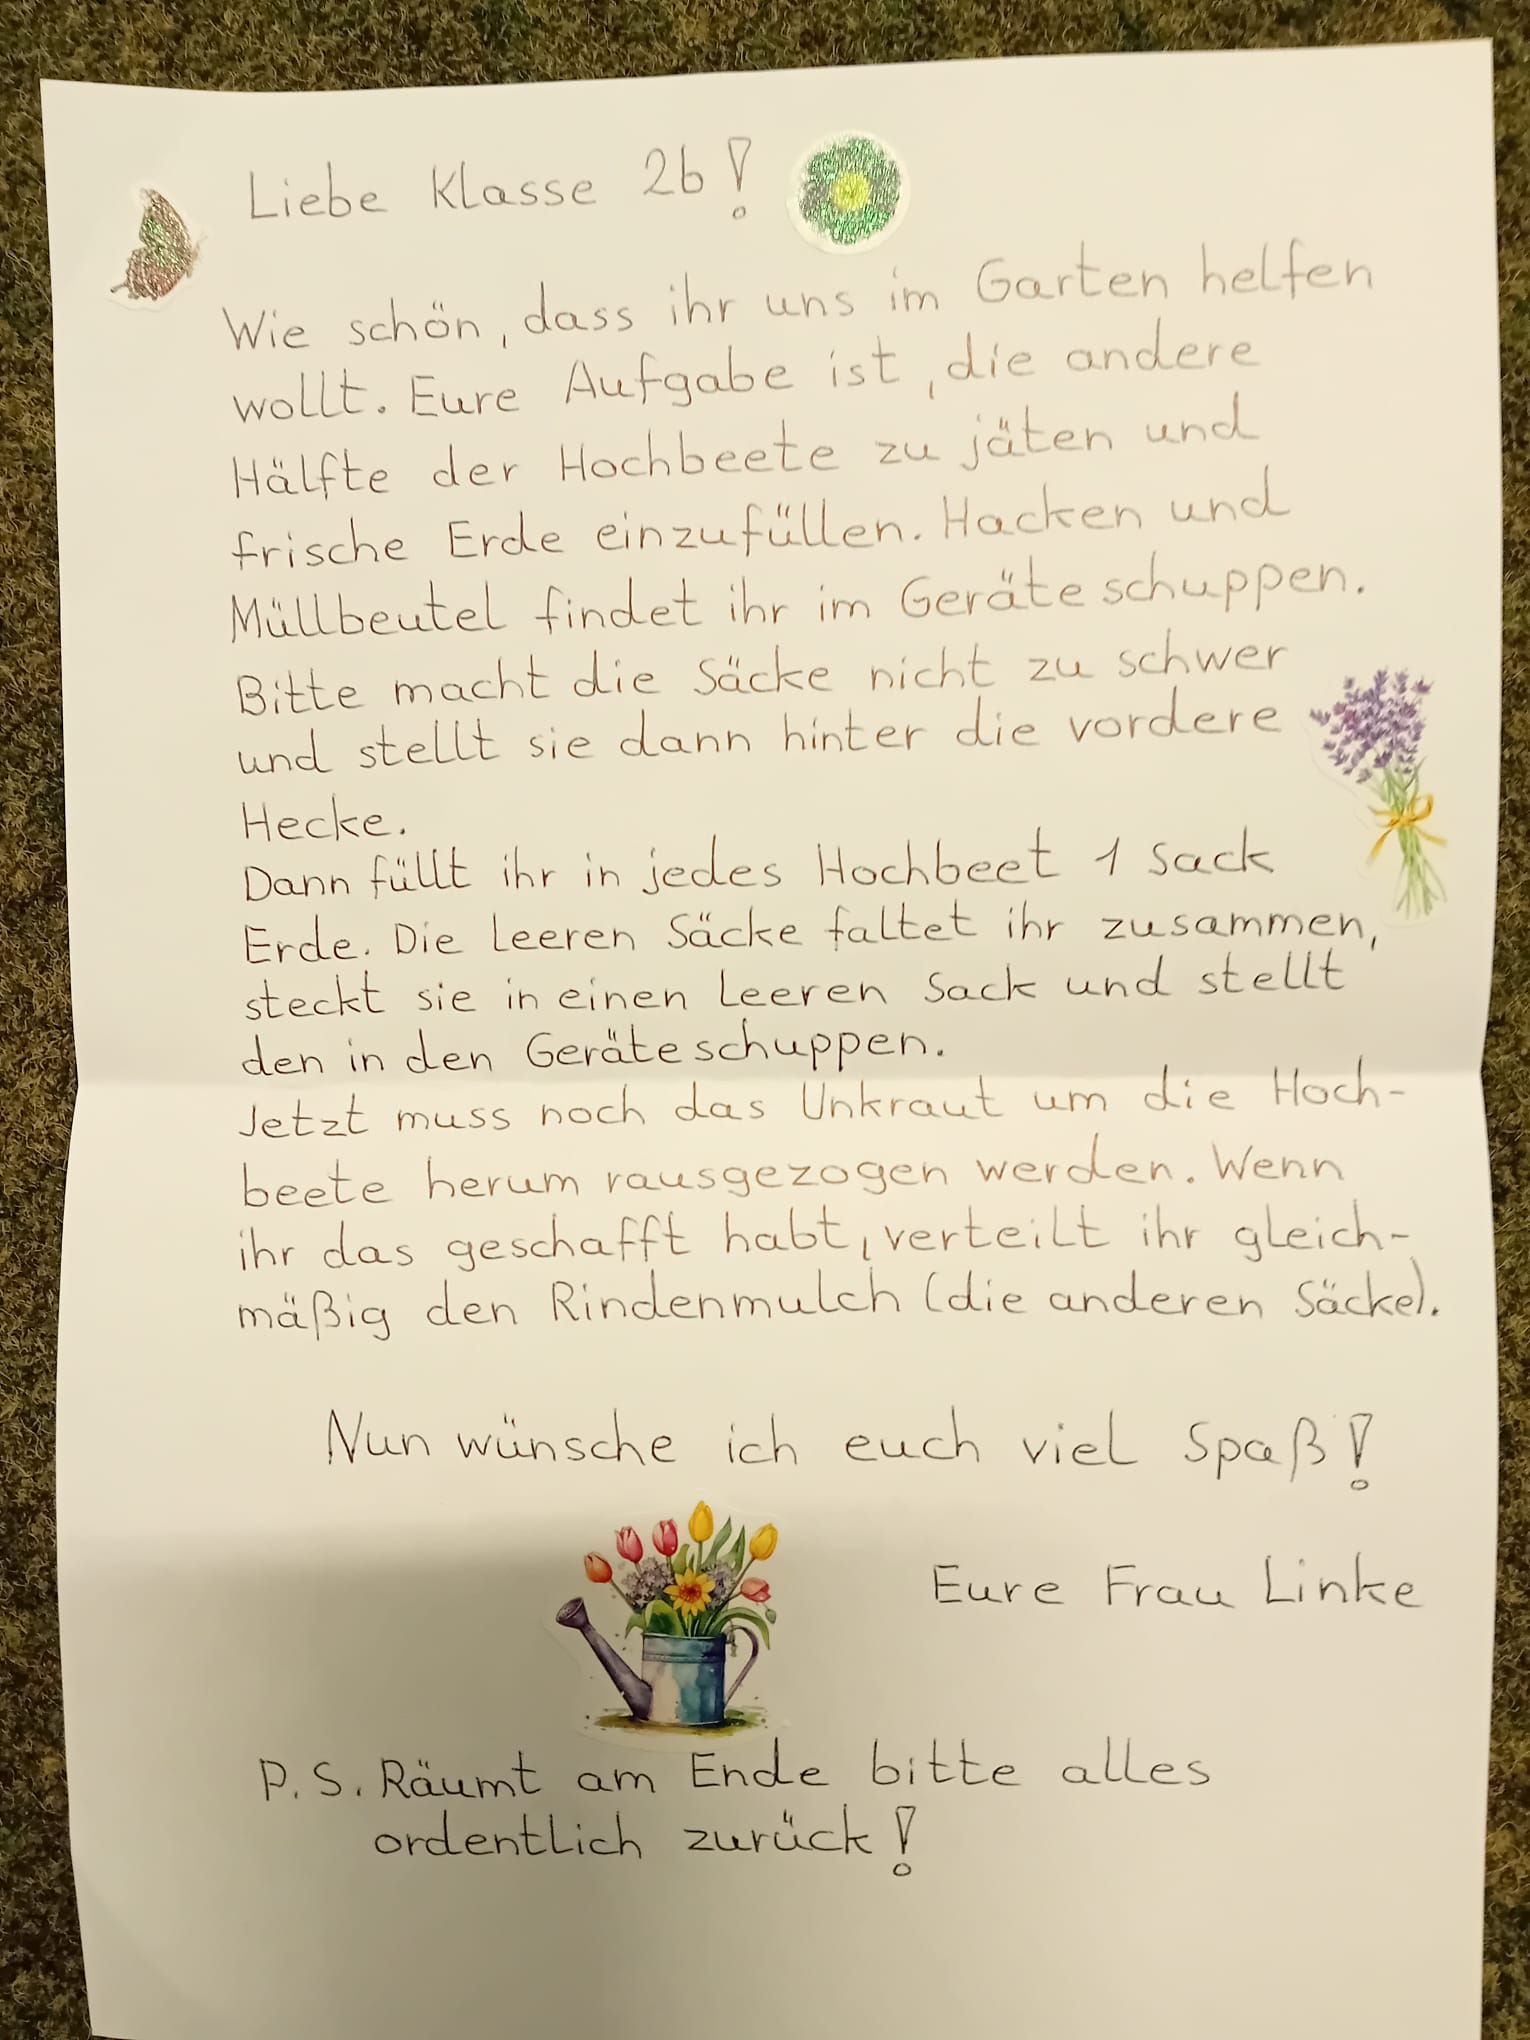 Liebe Klasse 2b!
Wie schön, dass ihr uns im Garten helfen
wollt. Eure Aufgabe ist, die andere
Hälfte der Hochbeete zu jäten und
frische Erde einzufüllen. Hacken und
Müllbeutel findet ihr im Geräteschuppen.
Bitte macht die Säcke nicht zu schwer
und stellt sie dann hinter die vordere
Hecke.
Dann füllt ihr in jedes Hochbeet 1 Sack
Erde. Die leeren Säcke faltet ihr zusammen,
steckt sie in einen leeren Sack und stellt
den in den Geräteschuppen.
Jetzt muss noch das Unkraut um die Hoch-
beete herum rausgezogen werden. Wenn
ihr das geschafft habt, verteilt ihr gleich-
mäßig den Rindenmulch (die anderen Säcke).
Nun wünsche ich euch viel Spaß!
Eure Frau Linke
P.S. Räumt am Ende bitte alles
ordentlich zurück!